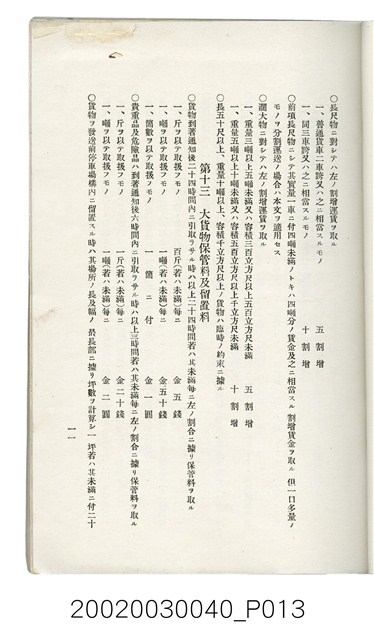 ○長尺物ニ對シテハ左ノ割增運賃ヲ取ル
一、普通貨車二車跨又ハ之ニ相當スルモノ 五割增
一、同三車跨又ハ之ニ相當スルモノ 十割增
○前項長尺物ニシテ其實量一車ニ付四噸未滿ノトキハ四噸分ノ賃金及之ニ相當スル割增賃金ヲ取ル但一口多量ノ
モノヲ分割運送ノ場合ハ本文ヲ適用セス
○濶大物ニ對シテハ左ノ割增運賃ヲ取ル
一、重量三噸以上五噸未滿又ハ容積三百立方尺以上五百立方尺未滿 五割增
一、重量五噸以上十噸未滿又ハ容積五百立方尺以上千立方尺未滿 十割增
○長五十尺以上、重量十噸以上、容積千立方尺以上ノ貨物ハ臨時ノ約束ニ據ル
第十三 大貨物保管料及留置料
○貨物到著通知後二十四時間內ニ引取ラサル時ハ以上二十四時間若ハ其未滿每ニ左ノ割合ニ據リ保管料ヲ取ル
一、斤ヲ以テ取扱フモノ 百斤(若ハ未滿)每ニ 金五錢
一、噸ヲ以テ取扱フモノ 一噸(若ハ未滿)每ニ 金五十錢
一、箇數ヲ以テ取扱フモノ 一箇ニ付 金一圓
○貴重品及危險品ハ到著通知後六時間內ニ引取ラサル時ハ以上三時間若ハ其未滿每ニ左ノ割合ニ據リ保管料ヲ取ル
一、斤ヲ以テ取扱フモノ 一斤(若ハ未滿)每ニ 金二十錢
一、噸ヲ以テ取扱フモノ 一噸(若ハ未滿)每ニ 金二圓
○貨物ヲ發送前停車場構內ニ留置スル時ハ其場所ノ長及幅ノ最長部ニ據リ坪數ヲ計算シ一坪若ハ其未滿ニ付二十
一一
20020030040_P013